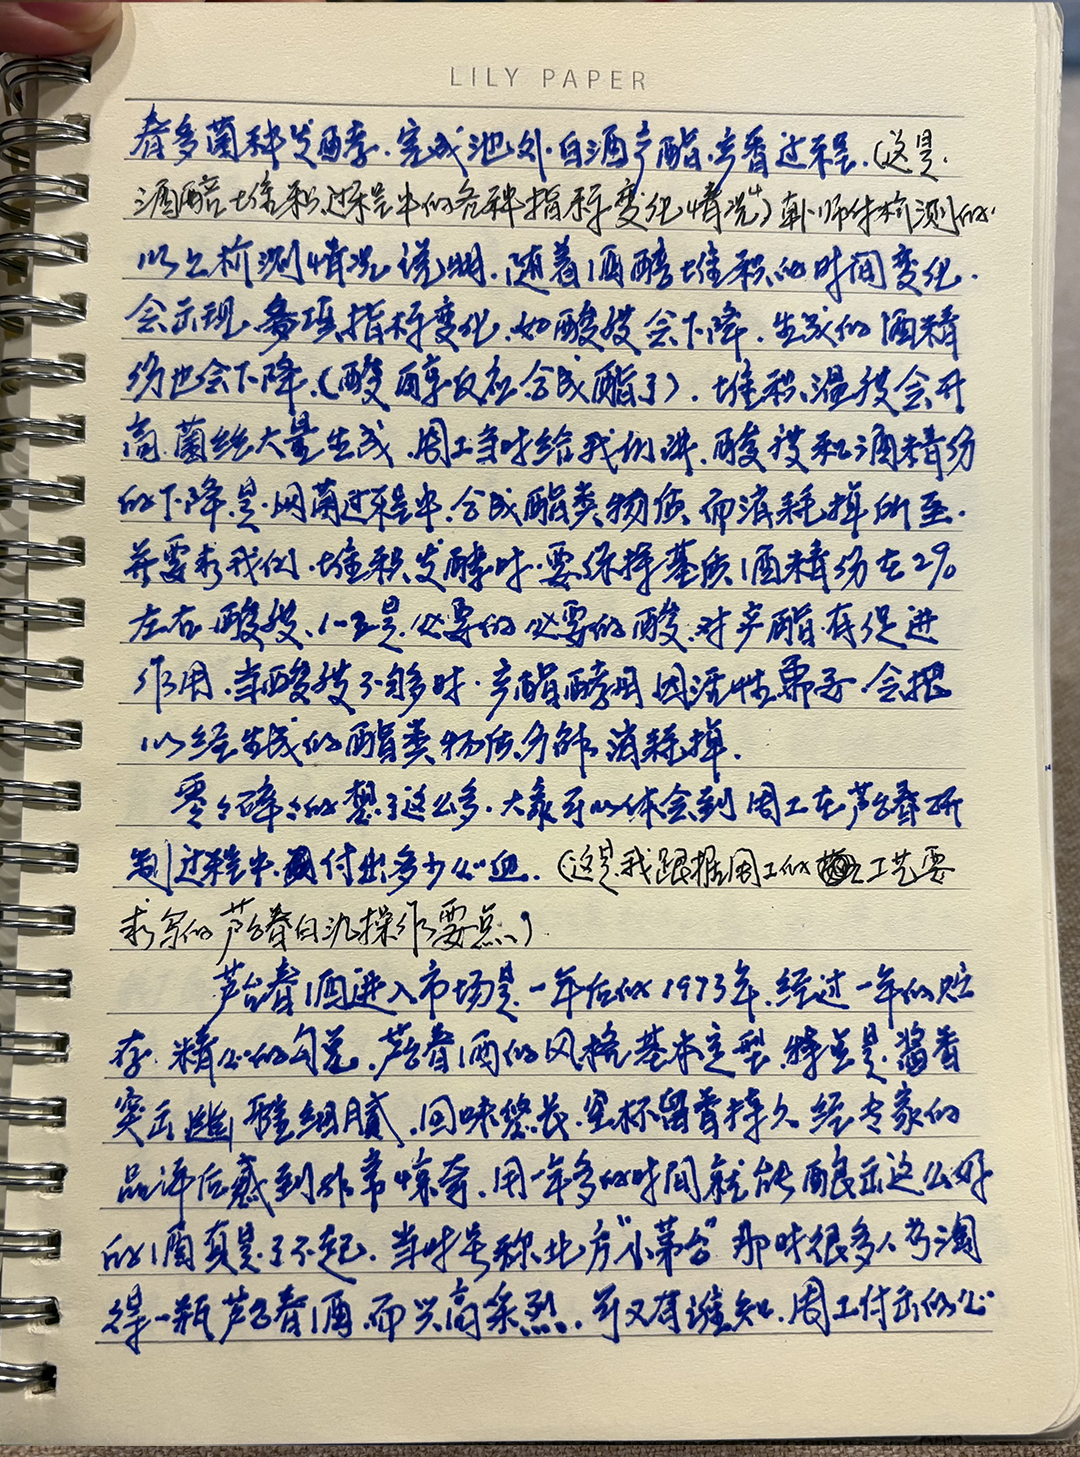 LILY PAPER
春多菌种发酵.完成池外.白酒产酯.产香过程.(这是.
酒醅堆积过程中的各种指标变化情况)靳师付检测的
以上检测情况说明.随着酒醅堆积的时间变化.
会示现各项指标变化.如酸度会下降.生成的酒精
份也会下降.(酸醇反应合成酯了).堆积温度会升
高.菌丝大量生成.周工当时给我们讲.酸度和酒精份
的下降.是.因菌过程中.合成酯类物质而消耗掉所至.
并要求我们.堆积发酵时.要保持基质酒精份在2%
左右 酸度.1-2是.必要的必要的酸.对产酯有促进
作用.当酸度不够多时.产酯酵母因活性 会把
以经生成的酯类物质分解.消耗掉.
零零碎碎的想了这么多.大家可以体会到周工在芦台春研
制过程中.付出多少心血.(这是我跟据周工的工艺要
求写的芦台春白酒操作要点.)
芦台春酒进入市场是.一年后的1973年.经过一年的贮
存.精心的勾兑.芦台春酒的风格基本定型.特点是.酱香
突出 幽雅细腻.回味悠长.空杯留香持久 经专家的
品评后感到非常惊奇.用一年多的时间就能酿出这么好
的酒真是了不起.当时号称北方"小茅台"那时很多人为淘
得一瓶芦台春酒.而兴高采烈.可又有谁知.周工付出的心